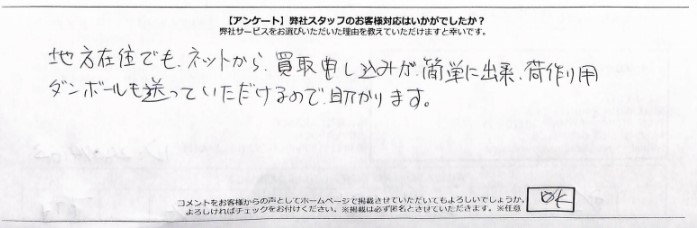 【アンケート】弊社スタッフのお客様対応はいかがでしたか？
弊社サービスをお選びいただいた理由を教えていただけますと幸いです。
地方在住でも、ネットから、買取申し込みが、簡単に出来、荷作り用
ダンボールも送っていただけるので、助かります。
コメントをお客様からの声としてホームページで掲載させていただいてもよろしいでしょうか。
よろしければチェックをお付けください。※掲載は必ず匿名とさせていただきます。※任意
OK